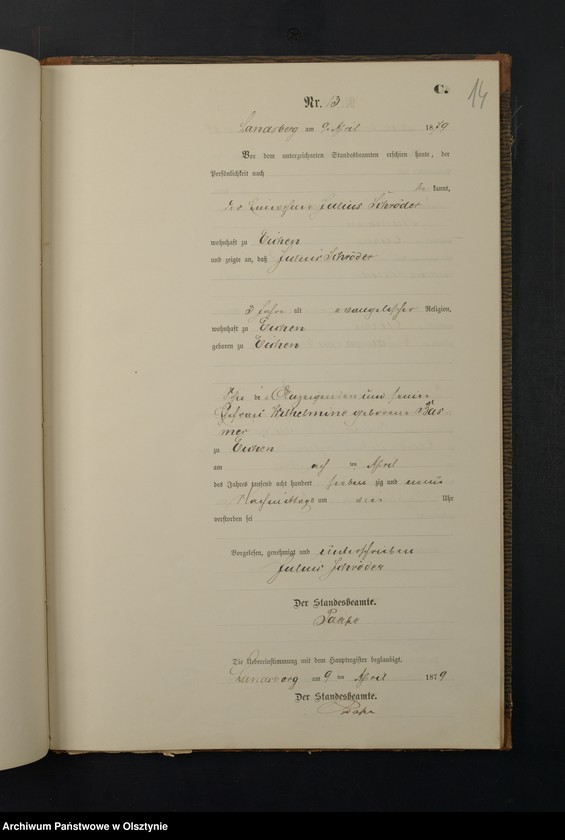 C.
14
Nr. 13
Landsberg am 9. April 1879
Vor dem unterzeichneten Standesbeamten erschien heute, der
Persönlichkeit nach
be kannt,
der Julius Schröder
wohnhaft zu Eichen
und zeigte an, daß Julius Schröder
3 Jahre alt evangelischer Religion,
wohnhaft zu Eichen
geboren zu Eichen
Sohn des Anzeigenden und seiner
Ehefrau Wilhelmine geborene
zu Eichen
am acht en April
des Jahres tausend acht hundert sieben zig und neun
Nachmittags um Uhr
verstorben sei
Vorgelesen, genehmigt und unterschrieben
Julius Schröder
Der Standesbeamte.
Die Uebereinstimmung mit dem Hauptregister beglaubigt.
Landsberg am 9 ten April 1879
Der Standesbeamte.
Archiwum Państwowe w Olsztynie